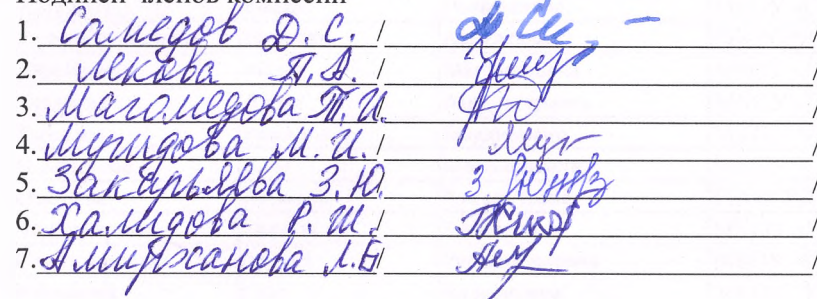 Подписи членов комиссии
1. Самедов Д. С. /
2. Лекова П. А. /
3. Магомедова Т. И. /
4. Мутидова М. И. /
5. Закарьяева З. Ю. /
6. Халидова Р. Ш. /
7. Амирханова Л. Б /